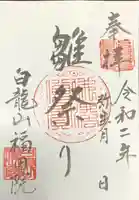 奉拝
令和二年
弥生月 日
雛祭り
白龍山福田院